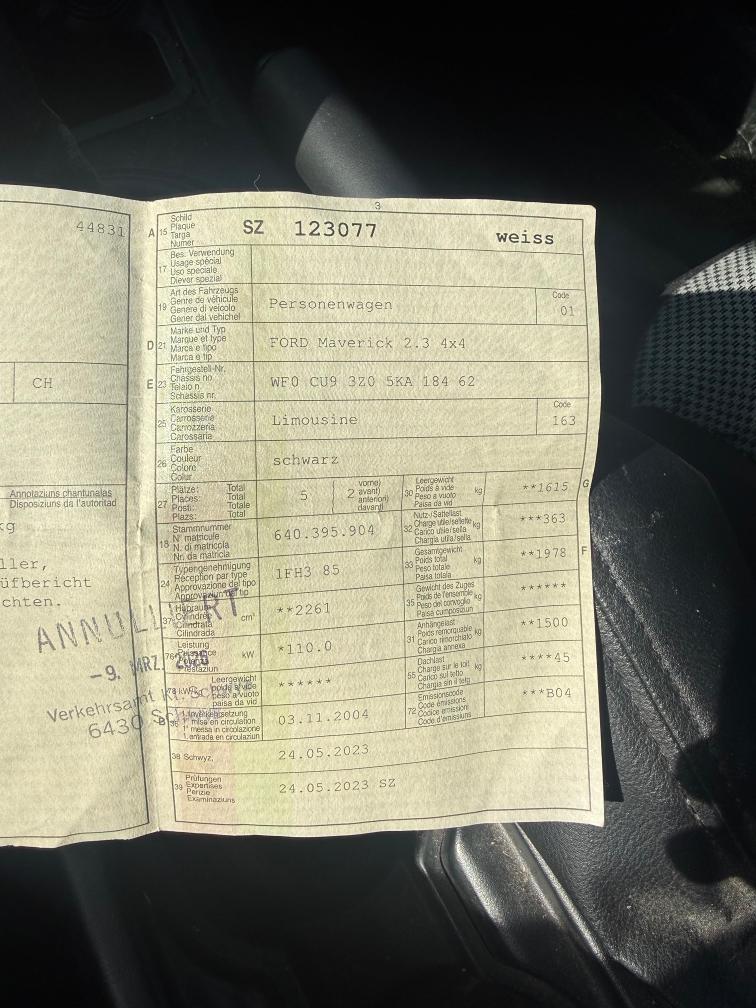 3
44831
CH
Annotaziuns chantunalas
Disposiziuns da l'autoritad
kg
ller,
üfbericht
chten.
ANNULLIERT
-9. MRZ. 2026
Verkehrsamt
6430
A 15 Schild
Plaque
Targa
Numer
SZ 123077 weiss
17 Bes. Verwendung
Usage spécial
Uso speciale
Diever spezial
19 Art des Fahrzeugs
Genre de véhicule
Genere di veicolo
Gener dal vehichel
Personenwagen
Code
01
D 21 Marke und Typ
Marque et type
Marca e tipo
Marca e tip
FORD Maverick 2.3 4x4
E 23 Fahrgestell-Nr.
Châssis no
Telaio n.
Schassis nr.
WF0 CU9 3Z0 5KA 184 62
25 Karosserie
Carrosserie
Carrozzeria
Carossaria
Limousine
Code
163
26 Farbe
Couleur
Colore
Colur
schwarz
27 Plätze: Total
Places: Total
Posti: Totale
Plazs: Total
5
2 vorne/
avant/
anteriori/
davant/
30 Leergewicht
Poids à vide
Peso a vuoto
Paisa da vid
kg
**1615 G
18 Stammnummer
N° matricule
N. di matricola
Nr. da matricla
640.395.904
32 Nutz-/Sattellast
Charge utile/sellette
Carico utile/sella
Chargia utila/sella
kg
***363
24 Typengenehmigung
Réception par type
Approvazione del tipo
Approvaziun da tip
1FH3 85
33 Gesamtgewicht
Poids total
Peso totale
Paisa totala
kg
**1978 F
37 Hubraum
Cylindrée
Cilindrata
Cilindrada
cm³
**2261
35 Gewicht des Zuges
Poids de l'ensemble
Peso del convoglio
Paisa cumposiziun
kg
******
76 Leistung
kW
*110.0
31 Anhängelast
Poids remorquable
Carico rimorchiato
Chargia annexa
kg
**1500
78 kW/kg
Leergewicht
poids à vide
peso a vuoto
paisa da vid
******
55 Dachlast
Charge sur le toit
Carico sul tetto
Chargia sin il tetg
kg
****45
36 1. Inverkehrsetzung
1re mise en circulation
1a messa in circolazione
1. entrada en circulaziun
03.11.2004
72 Emissionscode
Code émissions
Codice emissioni
Code d'emissiuns
***B04
38 Schwyz,
24.05.2023
39 Prüfungen
Expertises
Perizie
Examinaziuns
24.05.2023 SZ